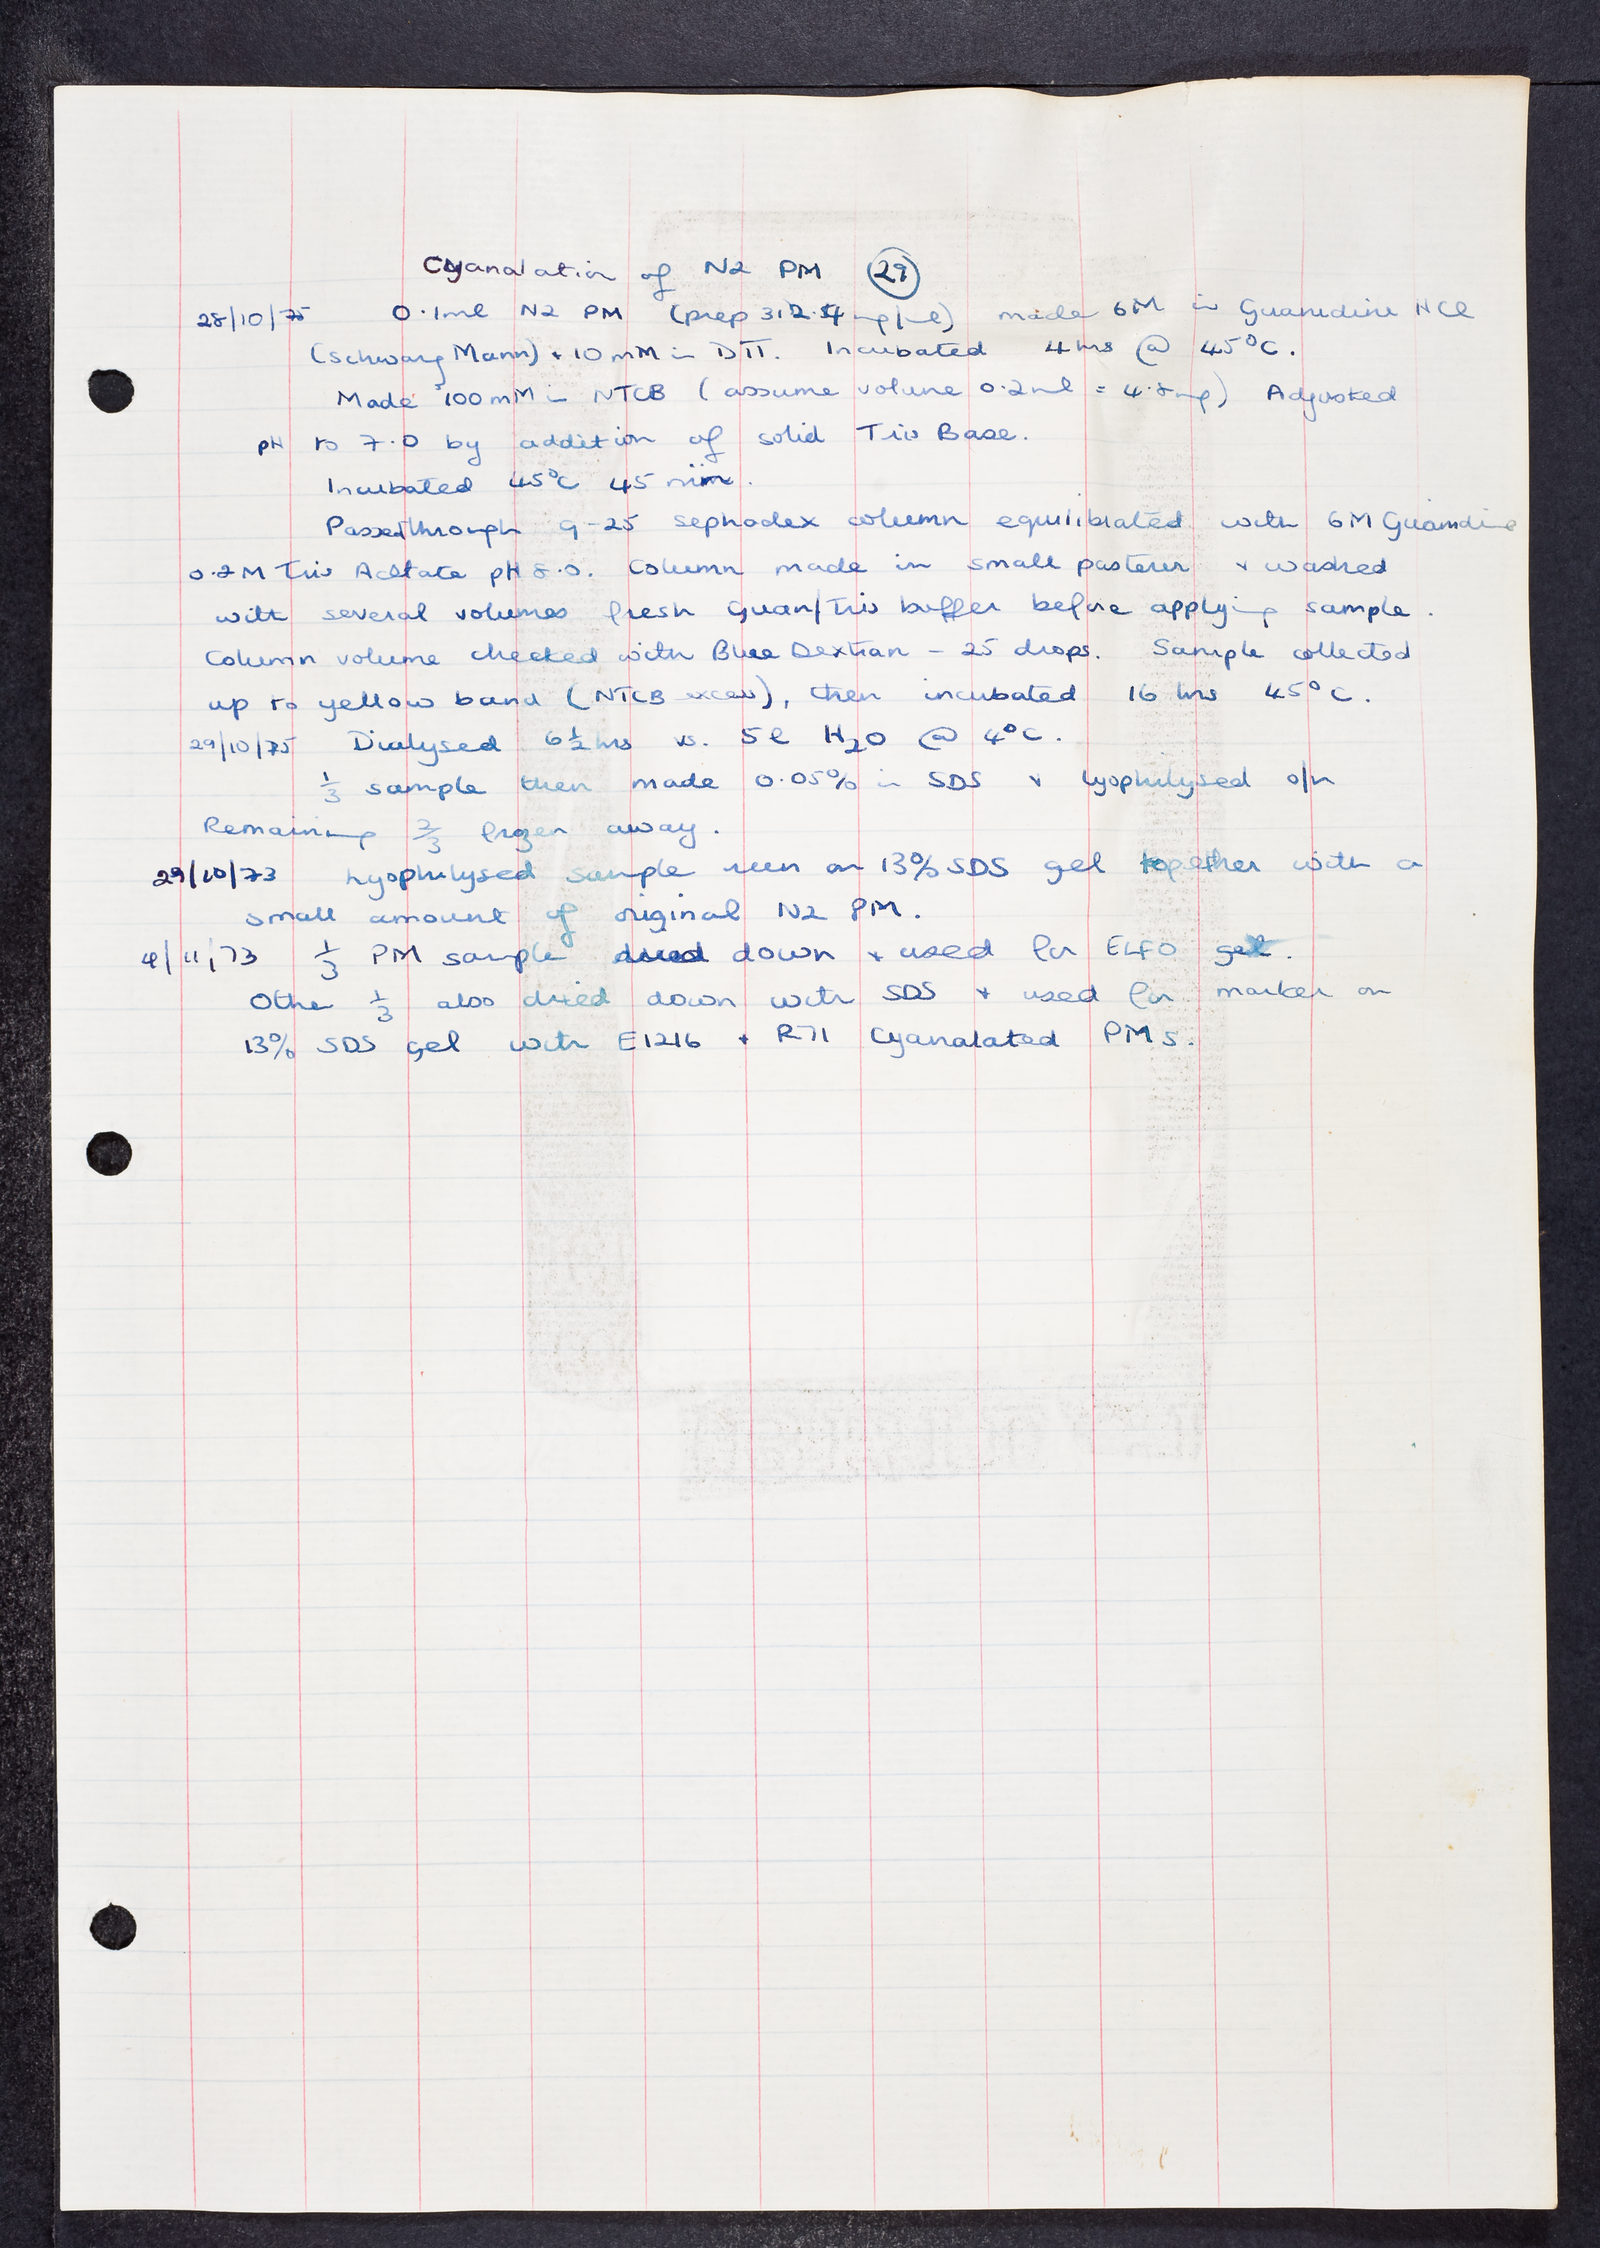 Cyanalation of N2 PM (29)
28/10/75 0.1ml N2 PM (prep 3, mg/ml) made 6M in Guanidine HCl
(Schwarz Mann) + 10 mM in DTT. Incubated 4 hrs @ 45°C.
Made 100 mM in NTCB (assume volume 0.2ml = 4.8mg) Adjusted
pH to 7.0 by addition of solid Tris Base.
Incubated 45°C 45 min.
Passed through G-25 sephadex column equilibrated with 6M Guanidine
0.2M Tris Acetate pH 8.0. Column made in small pasteur + washed
with several volumes fresh Guan/Tris buffer before applying sample.
Column volume checked with Blue Dextran – 25 drops. Sample collected
up to yellow band (NTCB excess), then incubated 16 hrs 45°C.
29/10/75 Dialysed 6½ hrs vs. 5l H2O @ 4°C.
⅓ sample then made 0.05% in SDS + lyophilysed o/n
Remaining ⅔ frozen away.
29/10/73 Lyophilysed sample run on 13% SDS gel together with a
small amount of original N2 PM.
4/11/73 ⅓ PM sample dried down + used for ELFO gel.
Other ⅓ also dried down with SDS + used for marker on
13% SDS gel with E1216 + R71 Cyanalated PMs.